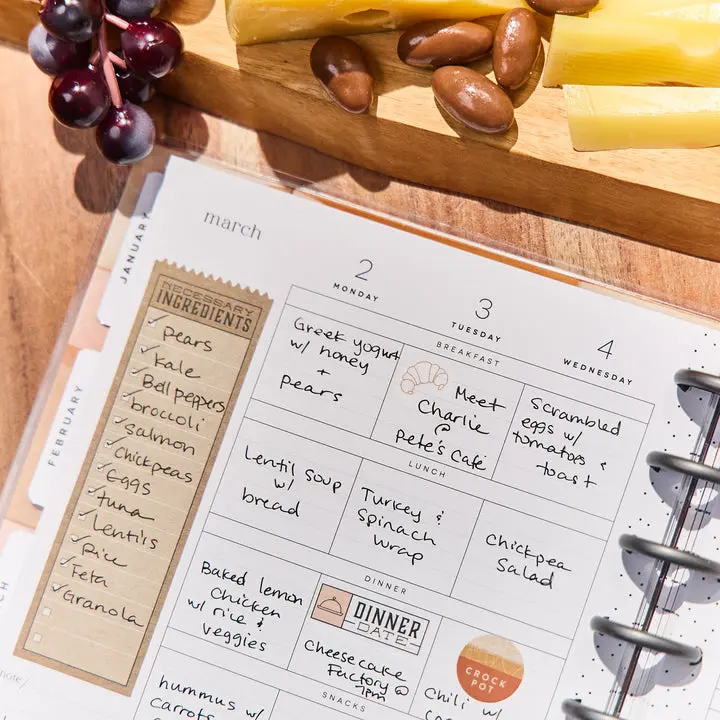 march
JANUARY
FEBRUARY
NECESSARY
INGREDIENTS
pears
Kale
Bell peppers
broccoli
Salmon
Chickpeas
Eggs
tuna
Lentils
Rice
Feta
Granola
2
MONDAY
3
TUESDAY
4
WEDNESDAY
BREAKFAST
Greek yogurt
w/ honey
+
Pears
Meet
Charlie
@
Pete's Café
Scrambled
eggs w/
tomatoes &
toast
LUNCH
Lentil Soup
w/
bread
Turkey &
Spinach
Wrap
Chickpea
Salad
DINNER
Baked lemon
Chicken
w/ rice &
veggies
DINNER
DATE
Cheesecake
Factory @
7pm
CROCK
POT
Chili w/
SNACKS
hummus w/
Carrots